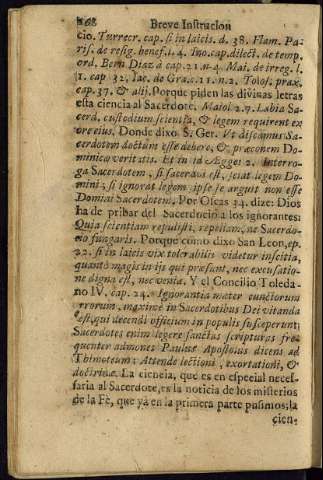 168 Breve Instrucion
cio. Turrecr. cap. si in laicis. d. 38. Flam. Pa-
ris. de resig. benef. l. 4. Ino. cap. dilect. de temp.
ord. Bern Diaz à cap. 21. n. 4. Mai. de irreg. l.
1. cap. 32. Iac. de Grac. 11. n. 2. Tolos. prax.
cap. 37. & alij. Porque piden las divinas letras
esta ciencia al Sacerdote. Maiol 2. 7. Labia Sa-
cerd, custodium scientiã, & legem requirent ex
ore eius. Donde dixo S. Ger. Vt discamus Sa-
cerdotem doctum esse debere, & præconem Do-
minicæ veritatis. Et in id Aggei 2. Interro-
ga Sacerdotem, si sacerdos est, sciat legem Do-
mini; si ignorat legem ipse se arguit non esse
Domini Sacerdotem. Por Oseas 34. dize: Dios
ha de pribar del Sacerdocio a los ignorantes:
Quia scientiam repulisti, repellam, ne Sacerdo-
tio fungaris. Porque como dixo San Leon, ep.
22. si in laicis vix tolerabilis videtur inscitia,
quantò magis in ijs qui præsunt, nec excusatio-
ne digna est, nec venia. Y el Concilio Toleda-
no IV. cap. 24. Ignorantia mater cunctorum
errorum, maximè in Sacerdotibus Dei vitanda
est, qui docendi officium in populis susceperunt;
Sacerdotes enim legere sanctas scripturas fre-
quenter admones Paulus Apostolus dicens ad
Thimoteum: Attende lectioni, exortationi, &
doctrinæ. La ciencia, que es en especial neces-
saria al Sacerdote, es la noticia de los misterios
de la Fè, que yà en la primera parte pusimos; la
cien-